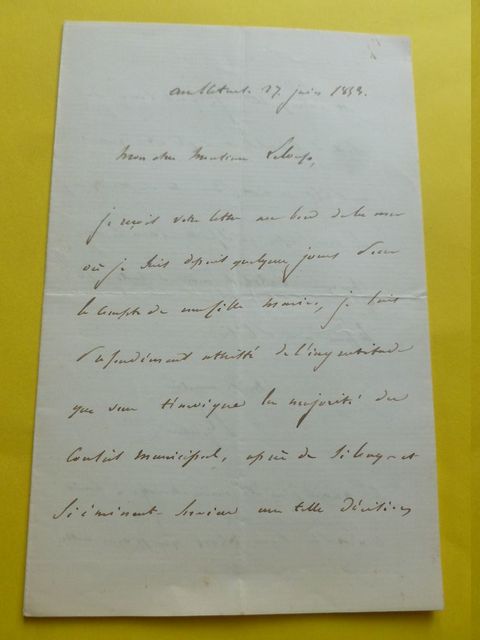 27 juin 1853.
Mon cher Monsieur Leloup,
je reçois votre lettre au bord de la mer
où je suis depuis quelques jours pour
le compte de ma fille Marie, je suis
profondément attristé de l'ingratitude
que vous témoigne la majorité du
Conseil municipal, après de si longs et
si éminents services une telle décision